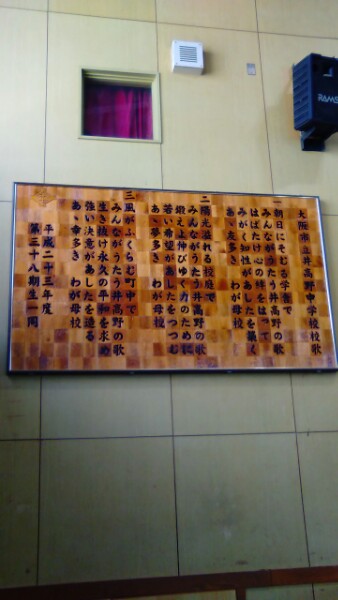 大阪市立井高野中学校校歌
一 朝日にそじる学舎で
みんながうたう井高野の歌
はばたけ心の絆をはって
みがく知性があしたを築く
あゝ友多き わが母校
二 陽光溢れる校庭で
みんながうたう井高野の歌
鍛えよ伸びゆく力のために
若い希望があしたをつつむ
あゝ夢多き わが母校
三 風がふくらむ町中で
みんながうたう井高野の歌
生き抜け永久の平和を求め
強い決意があしたを造る
あゝ幸多き わが母校
平成二十三年度
第三十八期生一同
RAMSA